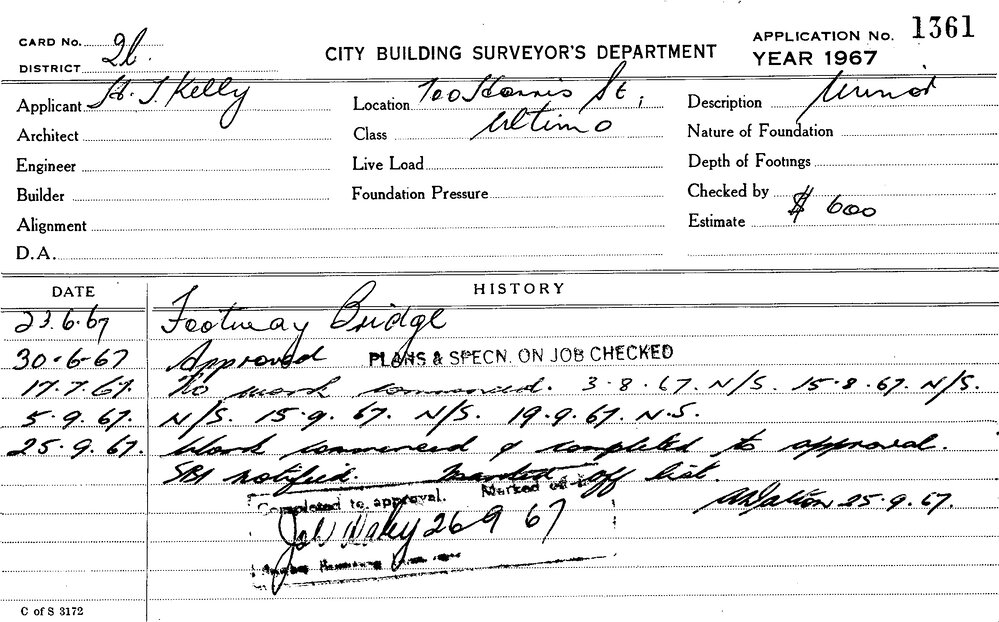 CARD No. 2l.
DISTRICT
CITY BUILDING SURVEYOR'S DEPARTMENT
APPLICATION No. 1361
YEAR 1967
Applicant H. J. Kelly
Location 700 Harris St;
Description Minor
Architect
Class Ultimo
Nature of Foundation
Engineer
Live Load
Depth of Footings
Builder
Foundation Pressure
Checked by
Alignment
Estimate $ 600
D.A.
DATE HISTORY
23.6.67 Footway Bridge
30-6-67 Approved PLANS & SPECN. ON JOB CHECKED
17.7.67. No work commenced. 3.8.67. N/S. 15.8.67. N/S.
5.9.67. N/S. 15.9.67. N/S. 19.9.67. N.S.
25.9.67. Work commenced & completed to approval.
notified. off list.
25.9.67.
Completed to approval. Marked off
26 9 67
C of S 3172